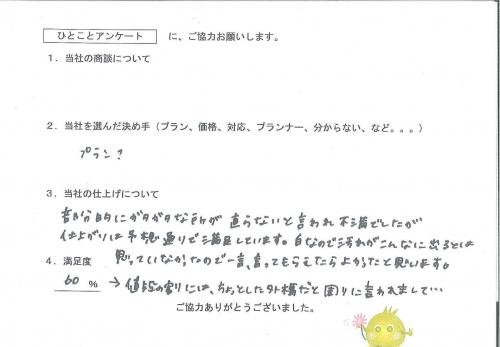 ひとことアンケート に、ご協力お願いします。
1．当社の商談について
2．当社を選んだ決め手（プラン、価格、対応、プランナー、分からない、など。。。）
プラン？
3．当社の仕上げについて
部分的にガタガタな所が直らないと言われ不満でしたが
仕上がりは予想通りで満足しています。白なので汚れがこんなに出るとは
思っていなかったので一言、言ってもらえたらよかったと思います。
4．満足度
60 % → 値段の割りには、ちょっとした外構だと周りに言われまして…
ご協力ありがとうございました。